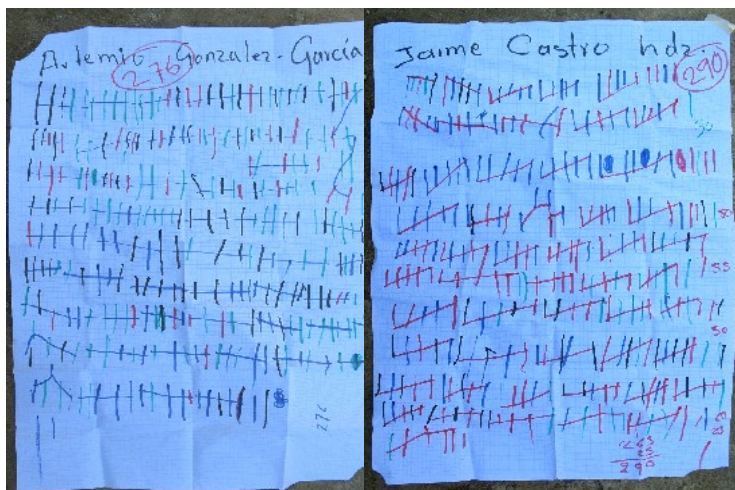 Artemio Gonzalez-García
276
276
Jaime Castro hdz
290
30
55
50
25
265
25
290